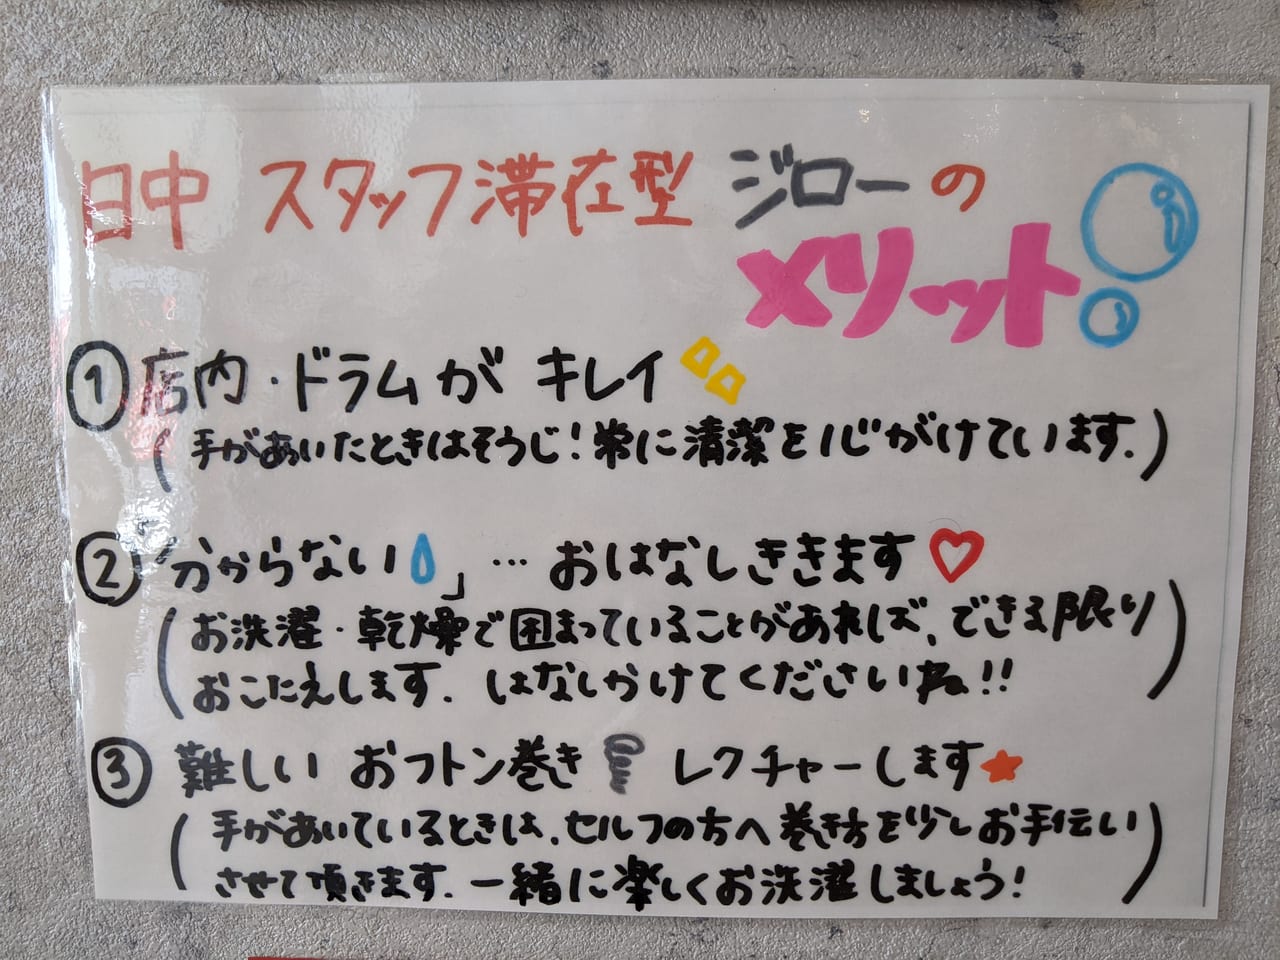 日中 スタッフ滞在型 ジローの
メリット
① 店内・ドラムが キレイ
(手があいたときはそうじ!常に清潔を心がけています.)
② 「分からない」…おはなしききます
(お洗濯・乾燥で困まっていることがあれば、できる限り
おこたえします. はなしかけてくださいね!!)
③ 難しい おフトン巻き レクチャーします
(手があいているときは、セルフの方へ巻き方を少しお手伝い
させて頂きます. 一緒に楽しくお洗濯しましょう!)